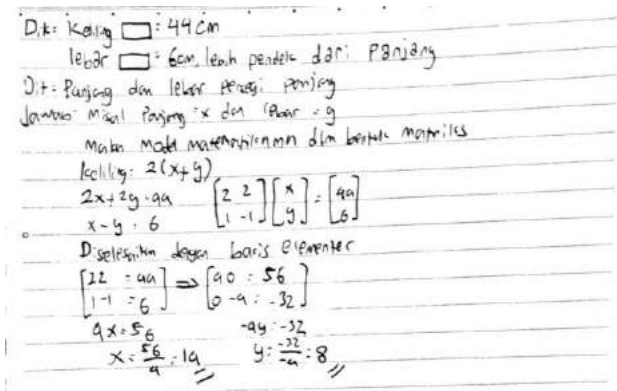 Dik: Keliling ▭ : 44 cm
lebar ▭ : 6cm lebih pendek dari panjang
Dit: Panjang dan lebar persegi panjang
Jawab: Misal Panjang = x dan lebar = y
maka model matematikanya dlm bentuk matriks
keliling: 2(x+y)
2x+2y = 44 [2 2 1 -1] [x y] = [44 6]
x-y = 6
Diselesaikan dengan baris elementer
[2 2 = 44 1 -1 = 6] ⇒ [4 0 = 56 0 -4 = -32]
4x = 56 -4y = -32
x = 56/4 = 14 y = -32/-4 = 8